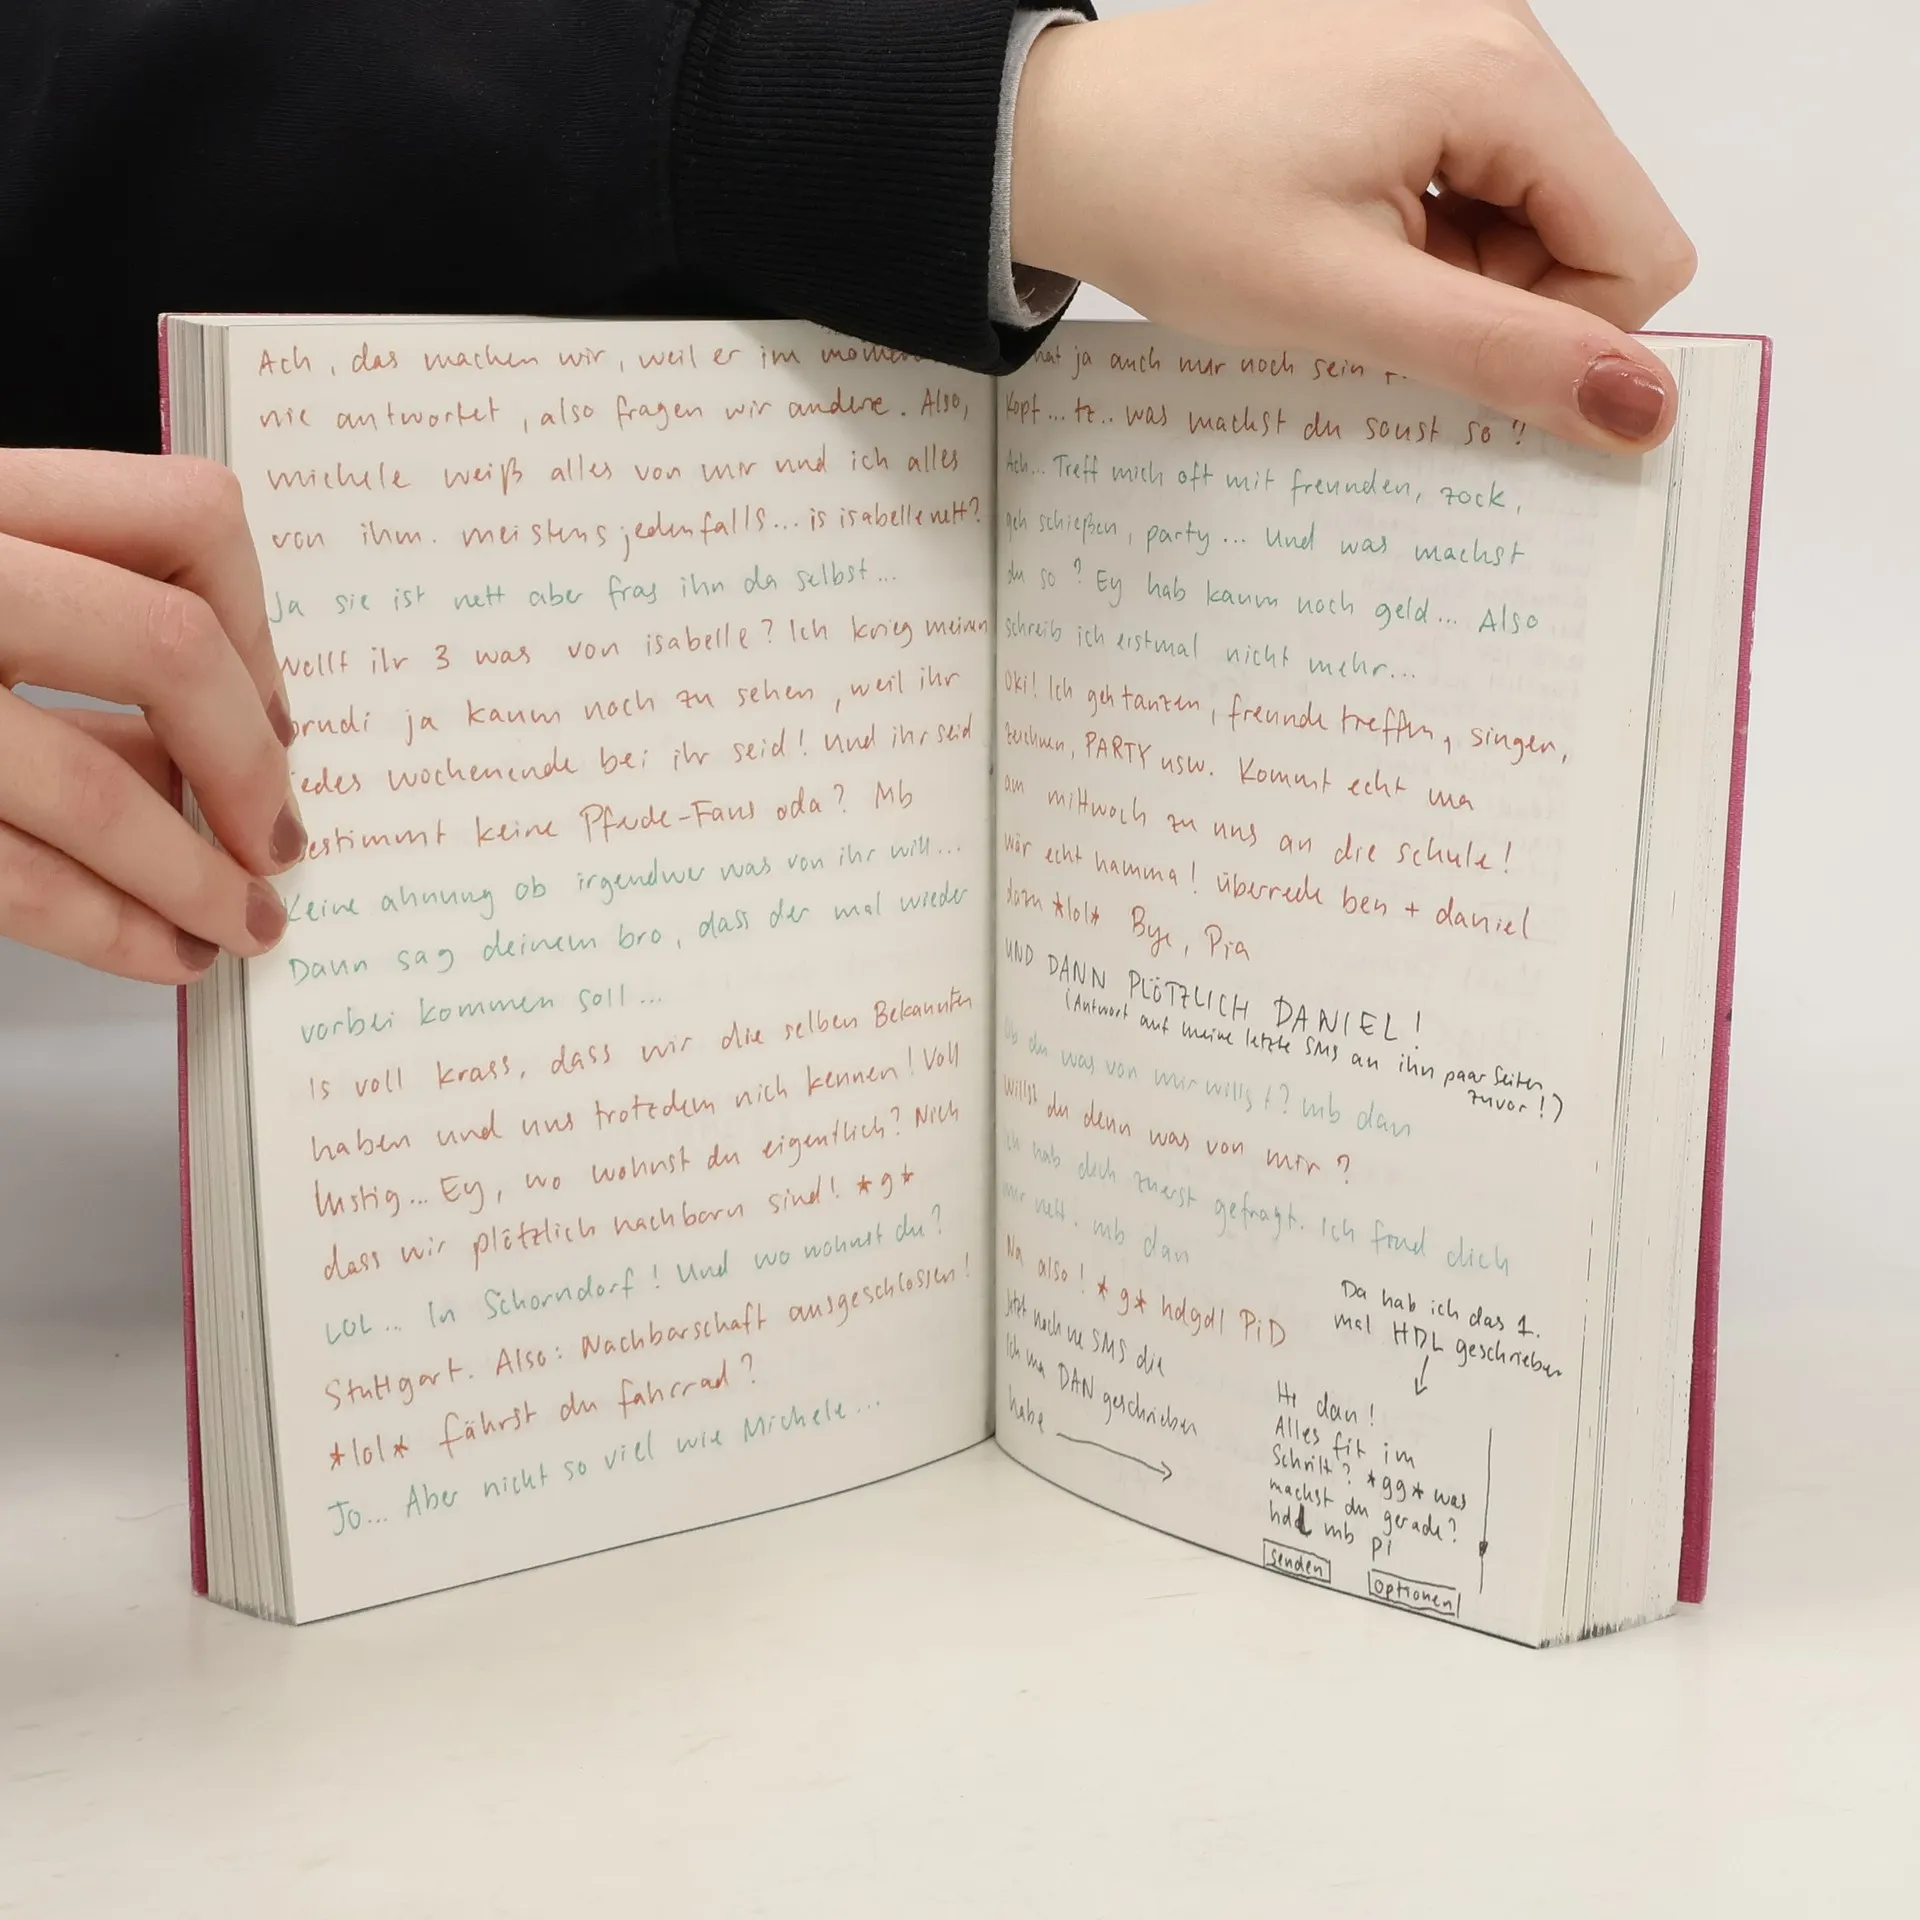 Ach, das machen wir, weil er im
nie antwortet, also fragen wir andere. Also,
michele weiß alles von mir und ich alles
von ihm. meistens jedenfalls... is isabelle nett?
Ja sie ist nett aber frag ihn da selbst...
Wollt ihr 3 was von isabelle? Ich krieg meinen
brudi ja kaum noch zu sehen, weil ihr
jedes wochenende bei ihr seid! Und ihr seid
bestimmt keine Pferde-Fans oda? Mb
Keine ahnung ob irgendwer was von ihr will...
Dann sag deinem bro, dass der mal wieder
vorbei kommen soll...
Is voll krass, dass wir die selben Bekannten
haben und uns trotzdem nich kennen! Voll
lustig... Ey, wo wohnst du eigentlich? Nich
dass wir plötzlich nachbarn sind! *g*
LOL... In Schorndorf! Und wo wohnst du?
Stuttgart. Also: Nachbarschaft ausgeschlossen!
*lol* fährst du fahrrad?
Jo... Aber nicht so viel wie Michele...
hat ja auch nur noch sein
Kopf... tz.. was machst du sonst so?
Ach... Treff mich oft mit freunden, zock,
geh schießen, party... Und was machst
du so? Ey hab kaum noch geld... Also
schreib ich erstmal nicht mehr...
Oki! Ich geh tanzen, freunde treffen, singen,
zeichnen, PARTY usw. Kommt echt ma
am mittwoch zu uns an die schule!
wär echt hamma! überrede ben + daniel
dazu *lol* Bye, Pia
UND DANN PLÖTZLICH DANIEL!
(Antwort auf meine letzte SMS an ihn paar Seiten
zuvor!)
Ob du was von mir willst? mb dan
Willst du denn was von mir?
Ich hab dich zuerst gefragt. Ich find dich
nur nett. mb dan
Na also! *g* hdgdl PiD
Jetzt noch ne SMS die
ich ma DAN geschrieben
habe
Da hab ich das 1.
mal HDL geschrieben
Hi dan!
Alles fit im
Schritt? *gg* was
machst du gerade?
hdl mb Pi
Senden
Optionen